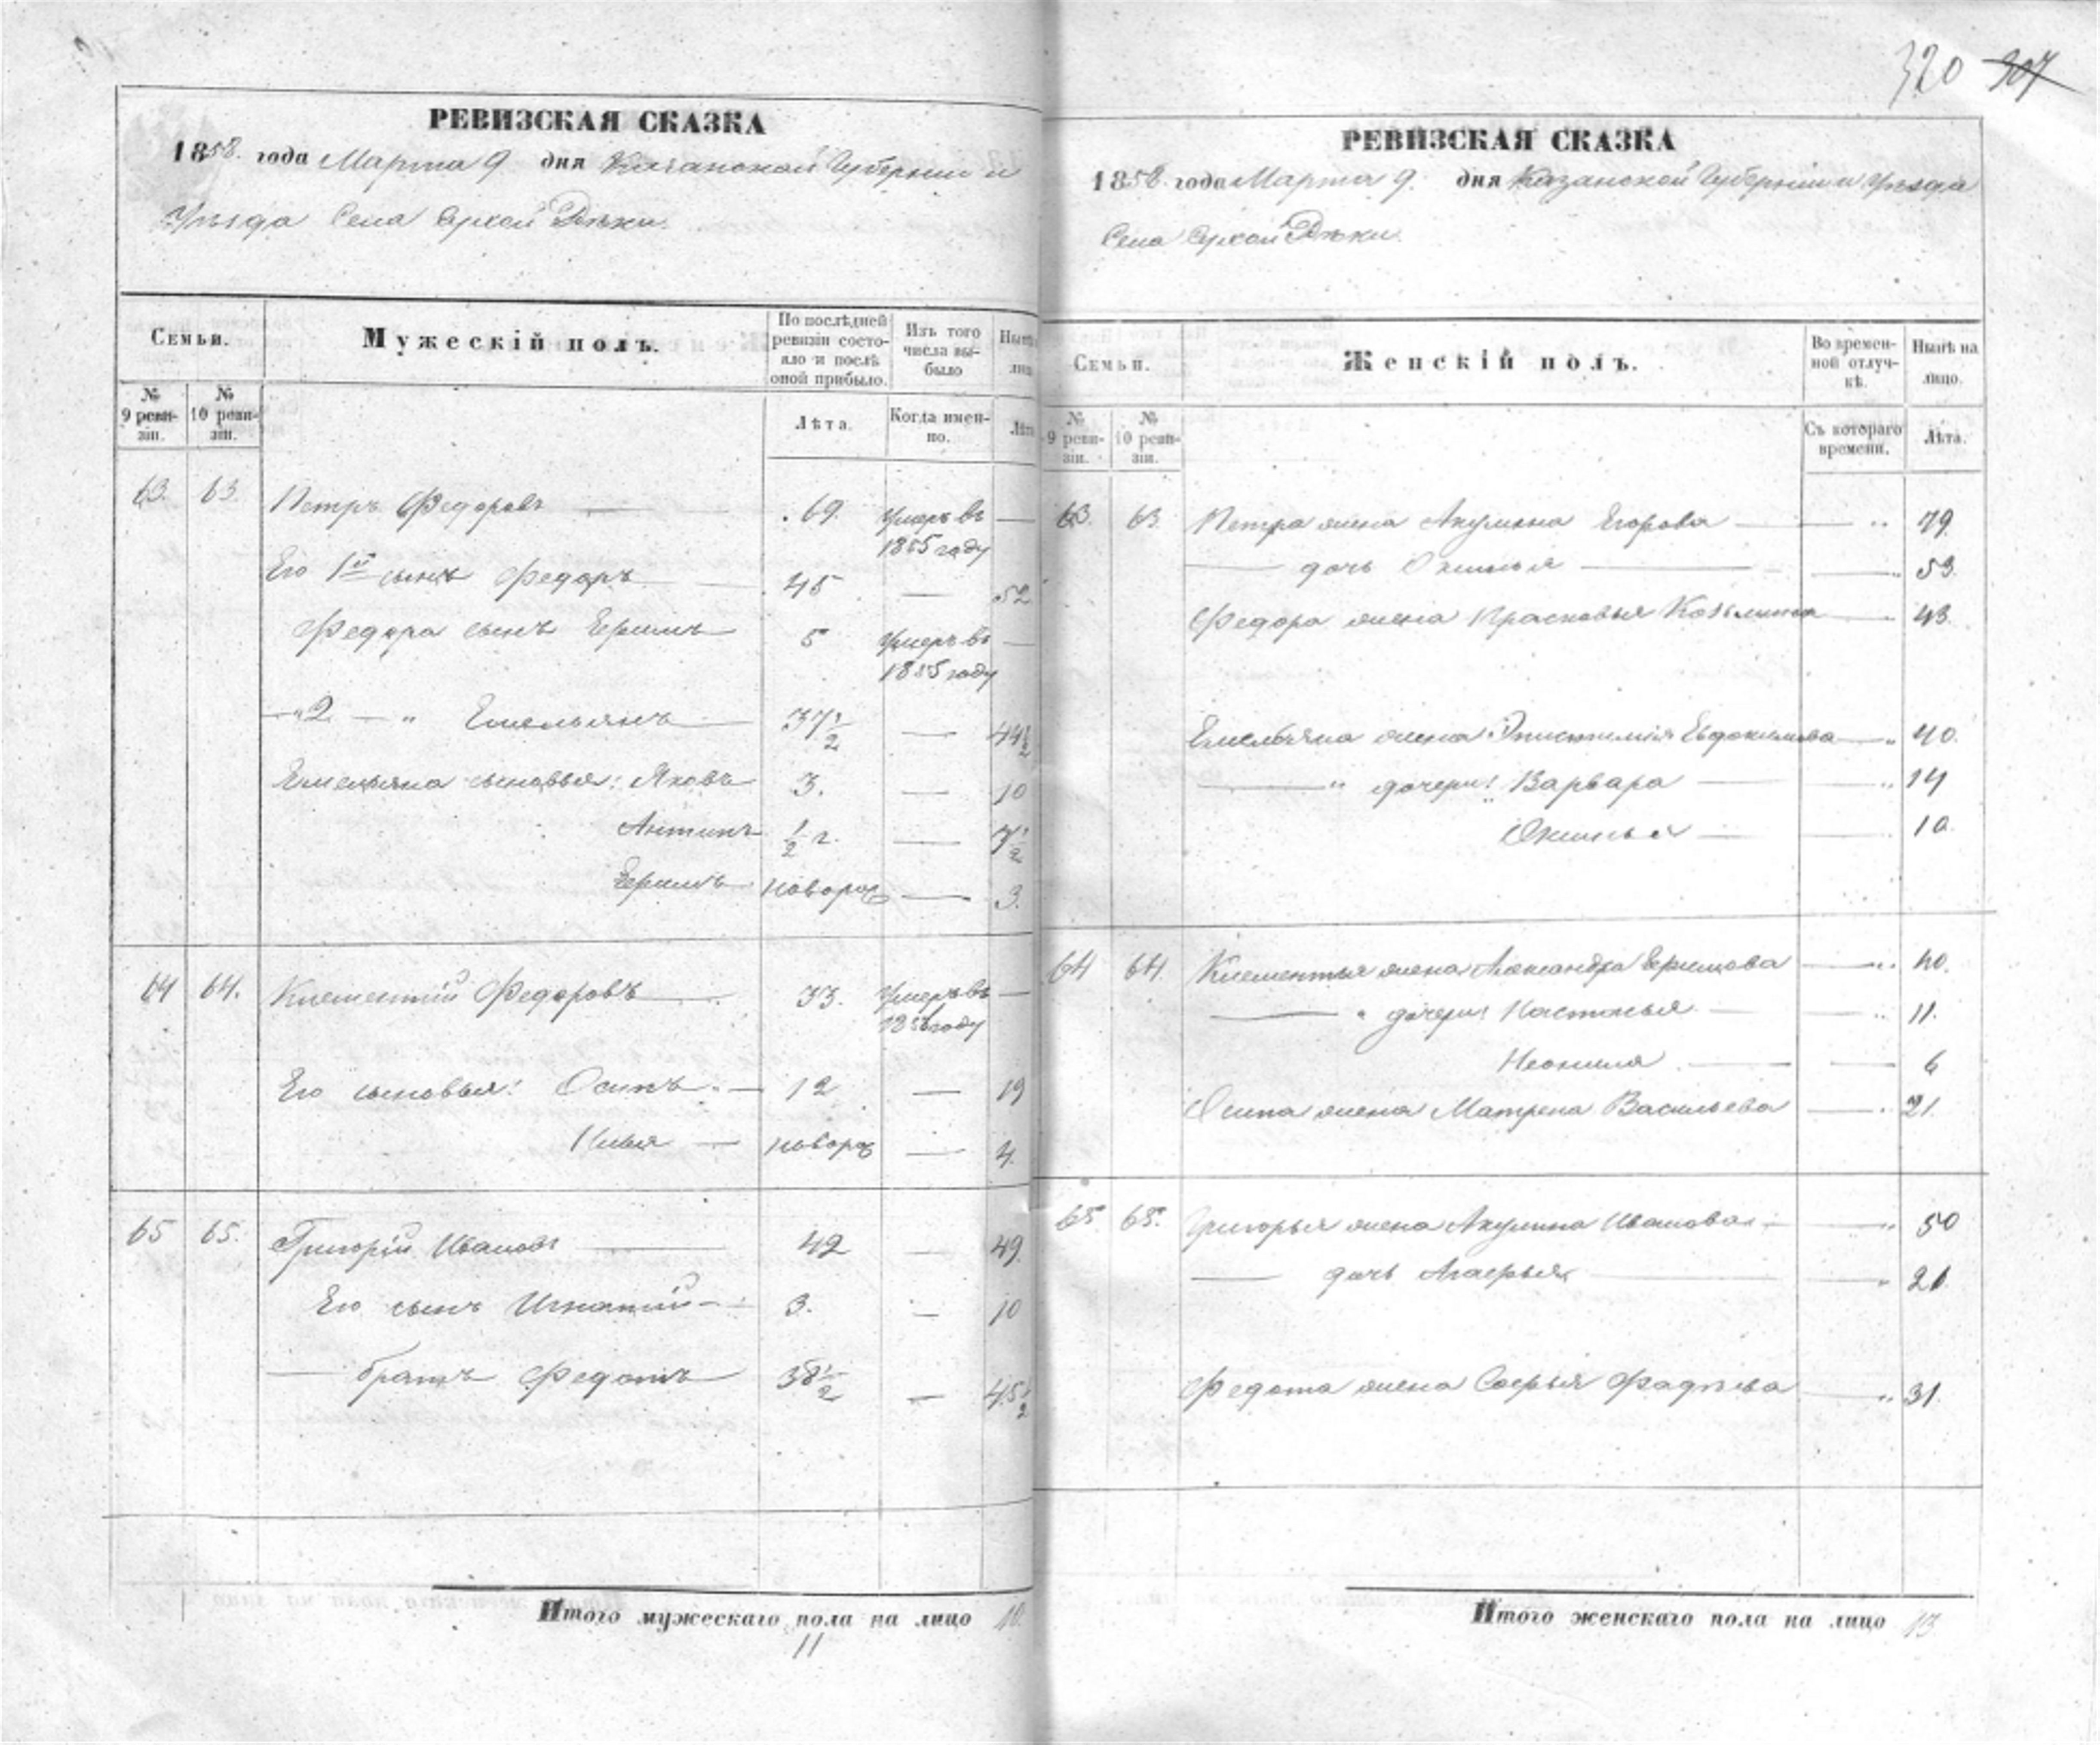 320 307
РЕВИЗСКАЯ СКАЗКА
1858. года Марта 9 дня Казанской Губернии и
Уѣзда Села Сухой Рѣки.
Семьи.
Мужескій полъ.
По послѣдней ревизіи состояло и послѣ оной прибыло.
Изъ того числа выбыло
Нынѣ
лиц
№ 9 ревизіи.
№ 10 ревизіи.
Лѣта.
Когда именно.
Лѣта
63. 63. Петръ Федоровъ 69. Умеръ въ 1855 году
Его 1й сынъ Федоръ 45 52
Федора сынъ Ефимъ 5 Умеръ въ 1855 году
"2 " Емельянъ 37 1/2 44 1/2
Емельяна сыновья: Яковъ 3. 10
Антипъ 1/2 г. 7 1/2
Ефимъ новорож 3.
64 64. Климентій Федоровъ 33. Умеръ въ году
Его сыновья: Осипъ 12 19
Илья новорож 4.
65 65. Григорій Ивановъ 42 49.
Его сынъ Игнатій 3. 10
братъ Федотъ 38 1/2 45 1/2
Итого мужескаго пола на лицо 10.
11
РЕВИЗСКАЯ СКАЗКА
1858. года Марта 9. дня Казанской Губерніи и Уѣзда
Села Сухой Рѣки.
Семьи.
Женскій полъ.
Во временной отлучкѣ.
Нынѣ на лицо.
№ 9 ревизіи.
№ 10 ревизіи.
Съ котораго времени.
Лѣта.
63. 63. Петра жена Акулина Егорова " 79.
дочь Оксинья " 53.
Федора жена Прасковья Козьмина " 43.
Емельяна жена Епистимія Евдокимова " 40.
" дочери: Варвара " 14
Оксинья 10.
64 64. Климентья жена Александра Ефимова " 40.
" дочери: Настасья " 11.
Неонила 6
Осипа жена Матрена Васильева " 21.
65. 65. Григорья жена Акулина Иванова " 50
дочь Агафья " 21
Федота жена Софья Фадѣева " 31.
Итого женскаго пола на лицо 13